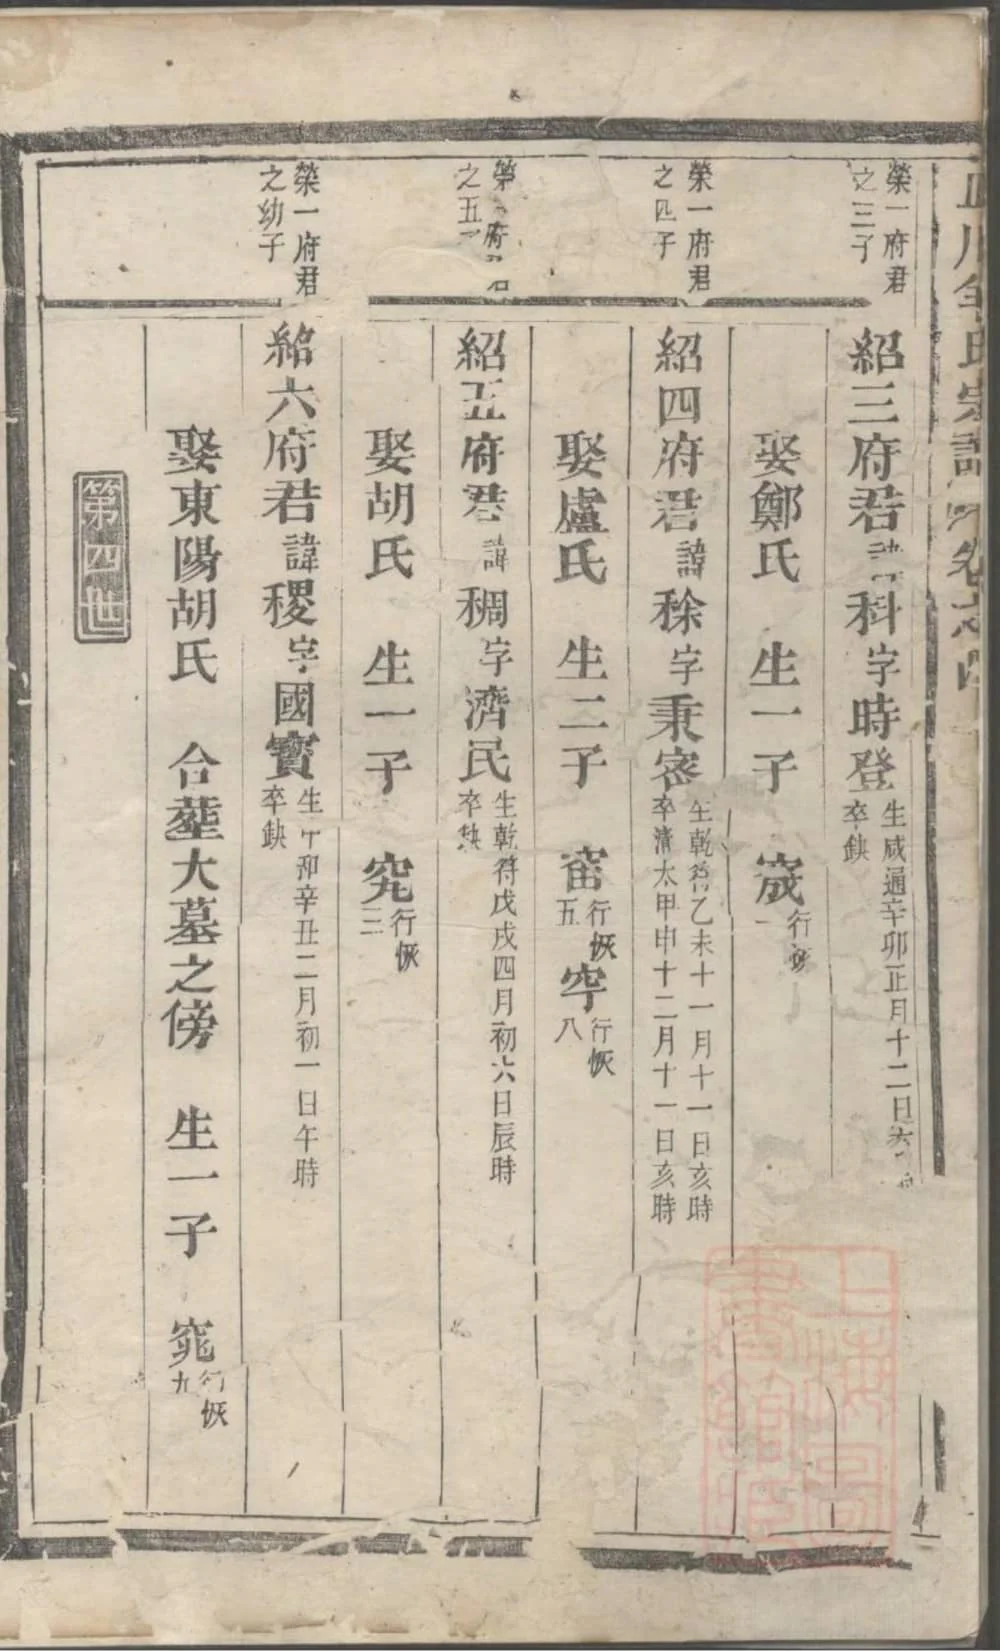 氏宗譜卷之四
榮一府君
之三子
紹三府君諱科字時登
生咸通辛卯正月十二日
卒缺
娶鄭氏 生一子 宬
行恢
一
榮一府君
之四子
紹四府君諱稌字秉密
生乾符乙未十一月十一日亥時
卒清太甲申十二月十一日亥時
娶盧氏 生二子 行恢五 行恢八
榮一府君
之五子
紹五府君諱稠字濟民
生乾符戊戌四月初六日辰時
卒缺
娶胡氏 生一子 究
行恢
三
榮一府君
之幼子
紹六府君諱稷字國寶
生中和辛丑二月初一日午時
卒缺
娶東陽胡氏 合塟大墓之傍 生一子 窕
行恢
九
第四世